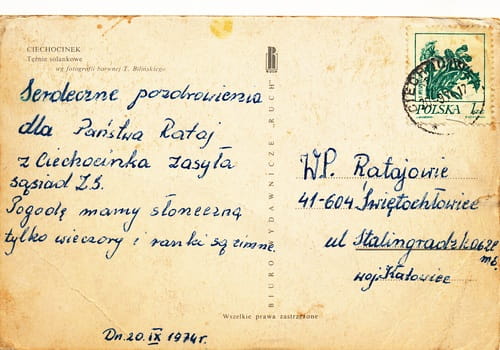 CIECHOCINEK
Tężnie solankowe
wg fotografii barwnej T. Bilińskiego
Serdeczne pozdrowienia
dla Państwa Rataj
z Ciechocinka zasyła
sąsiad Z.S.
Pogodę mamy słoneczną
tylko wieczory i ranki są zimne.
Dn. 20. IX 1974r.
BIURO WYDAWNICZE „RUCH"
Wszelkie prawa zastrzeżone
CIECHOCINEK
POLSKA
WP. Ratajowie
41-604 Świętochłowice
ul Stalingradzka 62E
woj. Katowice